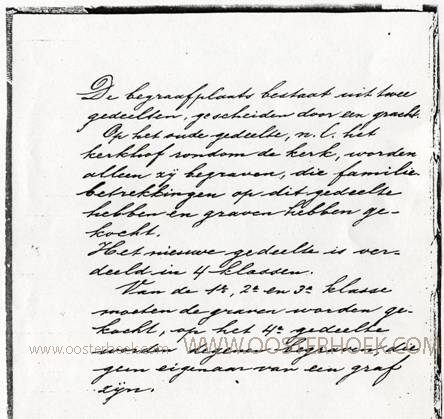 De begraafplaats bestaat uit twee
gedeelten, gescheiden door een gracht.
Op het oude gedeelte, n.l. het
kerkhof rondom de kerk, worden
alleen zij begraven, die familie-
betrekkingen op dit gedeelte
hebben en graven hebben ge-
kocht.
Het nieuwe gedeelte is ver-
deeld in 4 klassen.
Van de 1e, 2e en 3e klasse
moeten de graven worden ge-
kocht, op het 4e gedeelte
www.oosterhoek.com WWW.OOSTERHOEK.COM
worden degenen begraven, die
geen eigenaar van een graf
zijn.